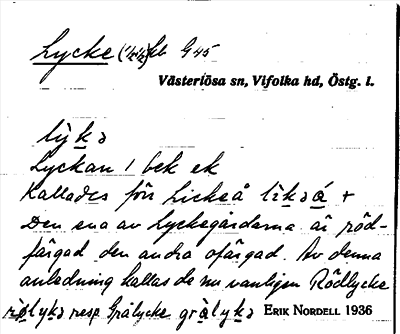 Lycke (½ ½) sk G 45
Västerlösa sn, Vifolka hd, Östg. l.
lỳkə
Lyckan 1 bek ek
Kallades förr Lickeå lìkəá +
Den ena av Lyckegårdarna är röd-
färgad den andra ofärgad. Av denna
anledning kallas de nu vanligen Rödlycke
rø̀lykə resp. Grålycke gràlykə ERIK NORDELL 1936